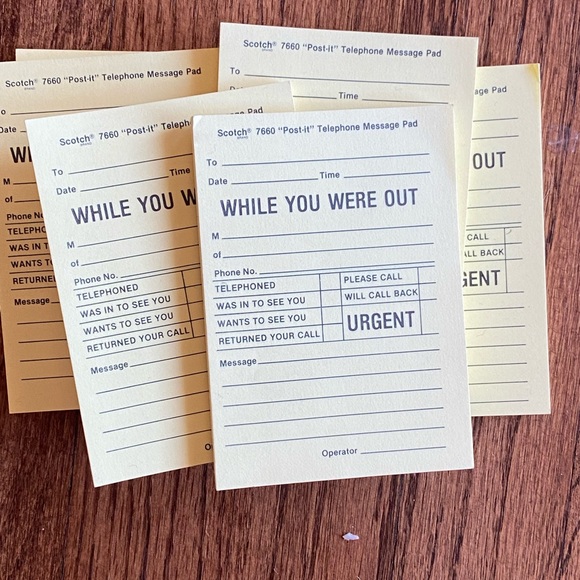 Scotch® 7660 "Post-it" Telephone Message Pad
BRAND
To
Date Time
WHILE YOU WERE OUT
M
of
Phone No.
TELEPHONED PLEASE CALL
WAS IN TO SEE YOU WILL CALL BACK
WANTS TO SEE YOU URGENT
RETURNED YOUR CALL
Message
Operator
Scotch® 7660 "Post-it" Teleph
BRAND
To
Date Time
WHILE YOU W
M
of
Phone No.
TELEPHONED
WAS IN TO SEE YOU
WANTS TO SEE YOU
RETURNED YOUR CALL
Message
O
Scotch® 7660 "Post-it" Telephone Message Pad
BRAND
To
Date
WH
M
of
Phone N
TELEPH
WAS IN T
WANTS T
RETURNED
Message
Scotch® 7660 "Post-it" Telephone Message Pad
BRAND
To
Time
age Pad
OUT
CALL
ALL BACK
GENT